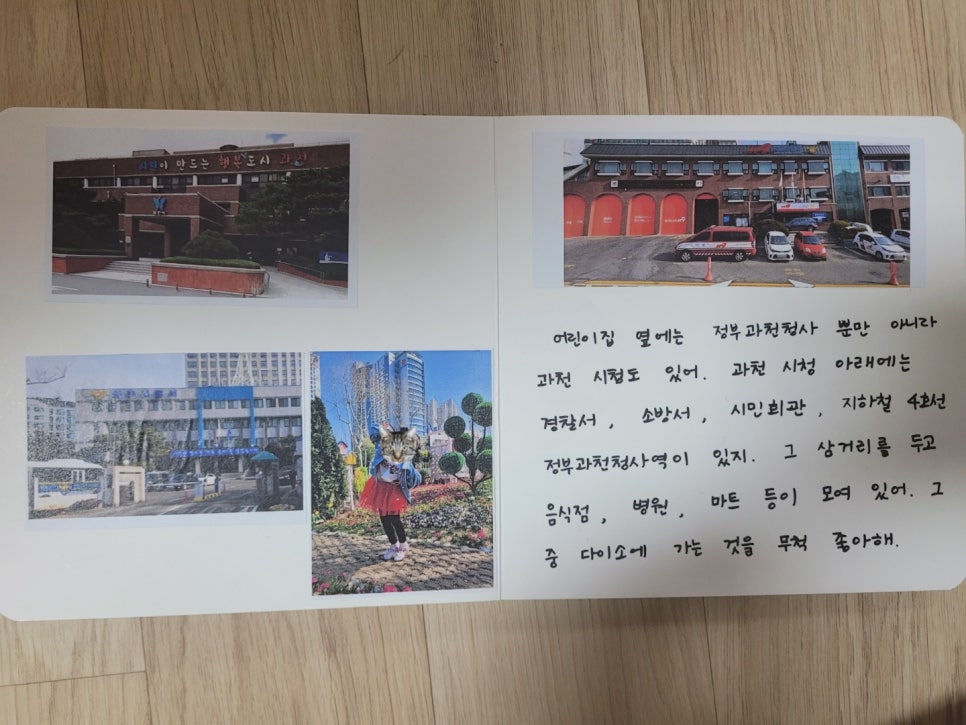 시민이 만드는 행복도시 과천
어린이집 옆에는 정부과천청사 뿐만 아니라
과천 시청도 있어. 과천 시청 아래에는
경찰서, 소방서, 시민회관, 지하철 4호선
정부과천청사역이 있지. 그 삼거리를 두고
음식점, 병원, 마트 등이 모여 있어. 그
중 다이소에 가는 것을 무척 좋아해.